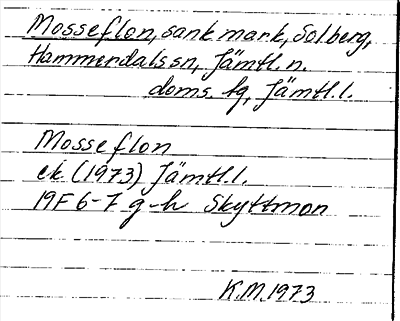 Mosseflon, sank mark, Solberg,
Hammerdals sn, Jämtl. n.
doms. hg, Jämtl. l.
Mosseflon
ek. (1973) Jämtl. l.
19F 6-7 g-h Skyttmon
K.M. 1973